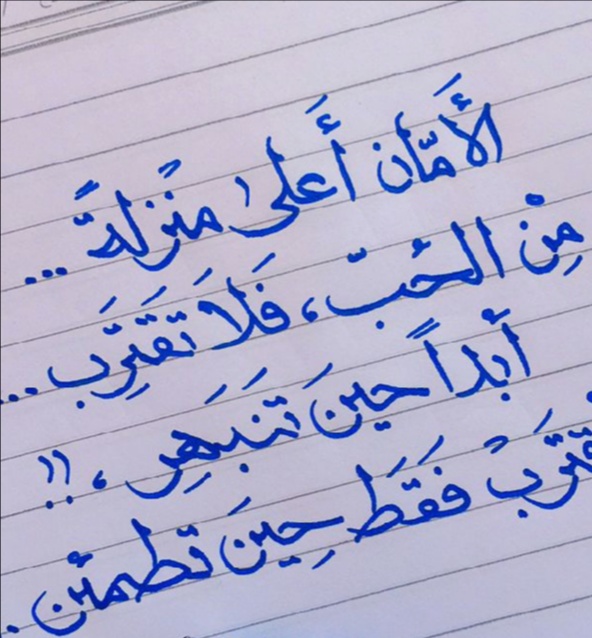 الأَمّان أَعلىٰ منْزلةً ...
مِنْ الحُبّ، فَلاَ تَقَتَرِب ...
أبداً حينَ تنَبَهِر ،!!
قتَربْ فَقَطَ حِينَ تطمئن .